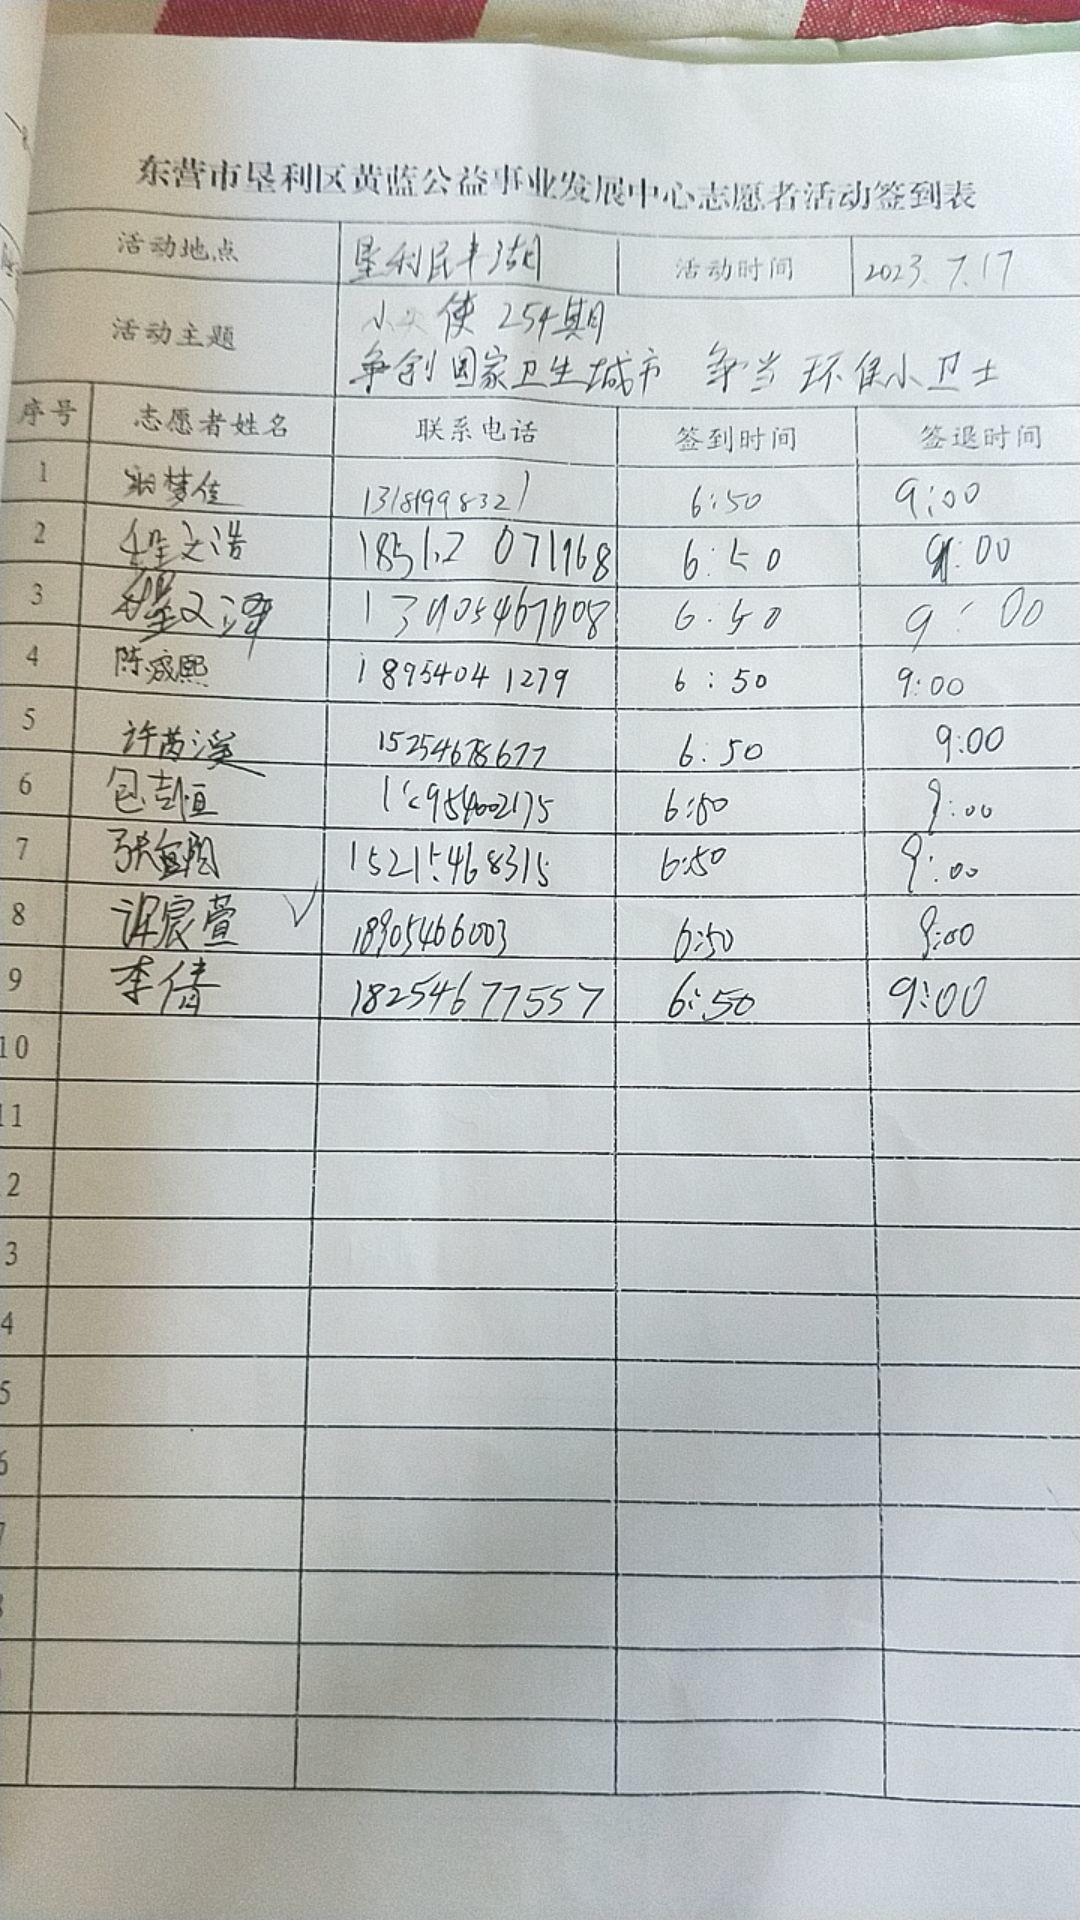 东营市垦利区黄蓝公益事业发展中心志愿者活动签到表
活动地点 垦利民丰湖 活动时间 2023.7.17
活动主题 小 使 254期
争创国家卫生城市 争当环保小卫士
序号 志愿者姓名 联系电话 签到时间 签退时间
1 梦佳 13181998321 6:50 9:00
2 文浩 18512071968 6:50 9:00
3 文泽 6:50 9:00
4 陈盛熙 18954041279 6:50 9:00
5 许芮溪 15254678677 6:50 9:00
6 包彭恒 6:50 9:00
7 张 15215468315 6:50 9:00
8 宸萱 √ 18905466003 6:50 9:00
9 李倩 18254677557 6:50 9:00
10
11
2
3
4
5
6
7
8